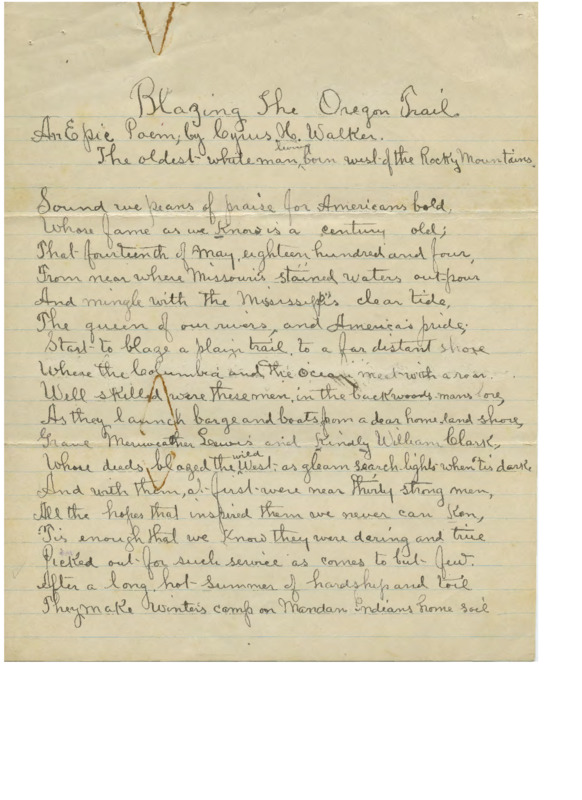 Blazing The Oregon Trail
An Epic Poem, by Cyrus H. Walker.
The oldest white man, living born west of the Rocky Mountains.
Sound we peans of praise for Americans bold,
Whose fame as we Know is a century old;
That fourteenth of May, eighteen hundred and four,
From near where Missouri's stained waters outpour
And mingle with the Mississippi's clear tide,
The queen of our rivers, and America's pride;
Start to blaze a plain trail, to a far distant shore
Where the Columbia and the ocean meet with a roar.
Well skilled were these men, in the backwoods mans lore,
As they launch barge and boats from a dear home land shore,
Grave Meriweather Lewis and Kindly William Clark,
Whose deeds blazed the wild West as gleam search lights when 'tis dark
And with them, at first were near thirty strong men,
All the hopes that inspired them we never can Kon,
Tis enough that we Know they were daring and true
Picked out for such service as comes to but few.
After a long hot summer of hardship and toil
They make winters camp on Mandan Indians home soil